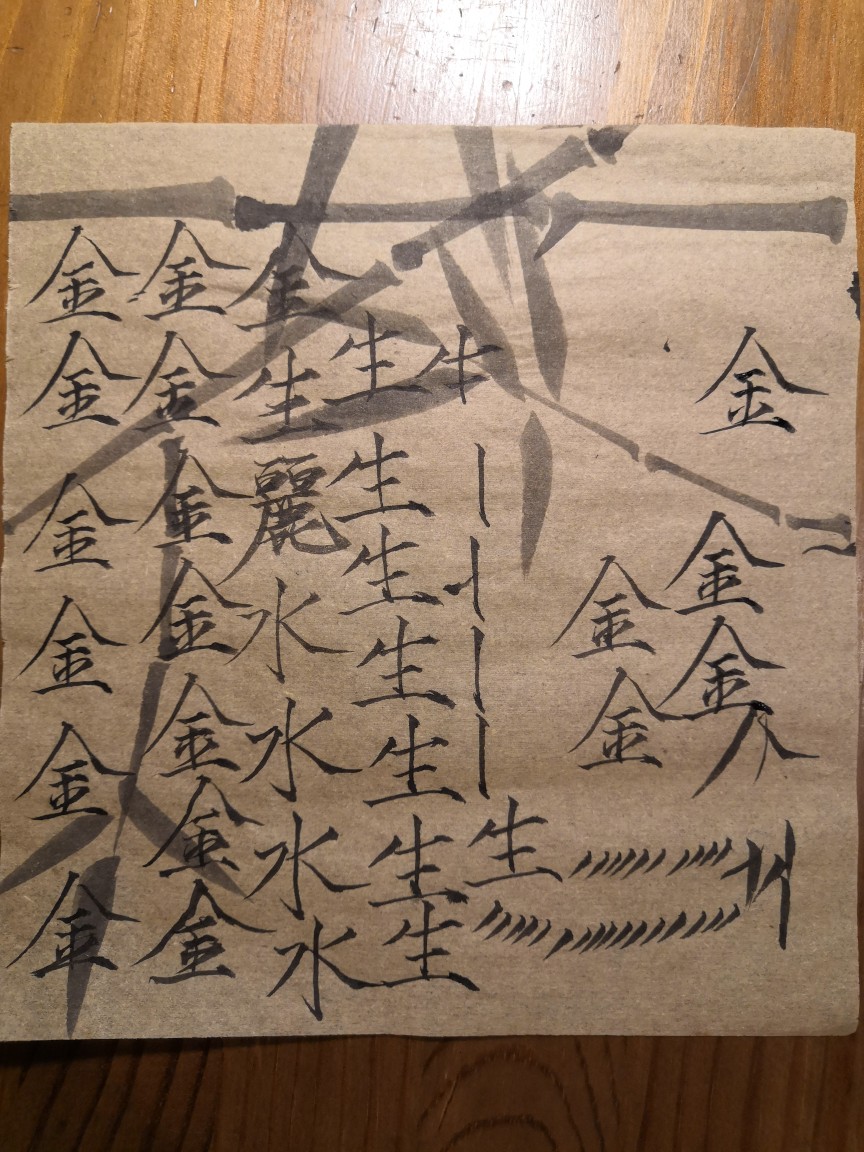 金金金金金金
金金金金金金金
金生麗水水水水
生生生生生生生
生
金金
金金金